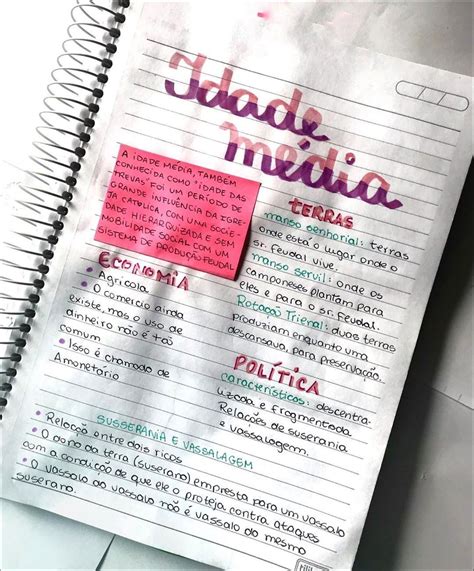 Idade
média
A IDADE MÉDIA, TAMBÉM
CONHECIDA COMO "IDADE DAS
TREVAS" FOI UM PERÍODO DE
GRANDE INFLUÊNCIA DA IGRE
JA CATÓLICA, COM UMA SOCIE-
DADE HIERARQUIZADA E SEM
MOBILIDADE SOCIAL COM UM
SISTEMA DE PRODUÇÃO FEUDAL
TERRAS
manso senhorial: terras
onde esta o lugar onde o
sr. feudal vive.
manso servil: onde os
camponeses plantam para
eles e para o sr. feudal.
Rotação Trienal: duas terras
produziam enquanto uma
descansava, para preservação.
ECONOMIA
• Agrícola
• O comércio ainda
existe, mas o uso de
dinheiro não é tão
comum
• Isso é chamado de
Amonetário
POLÍTICA
características: descentra-
lizada e fragmentada
Relações de suserania
e vassalagem.
SUSSERANIA E VASSALAGEM
• Relação entre dois ricos
• O dono da terra (suserano) empresta para um vassalo
com a condição de que ele o proteja contra ataques
• O vassalo do vassalo não é vassalo do mesmo
suserano.